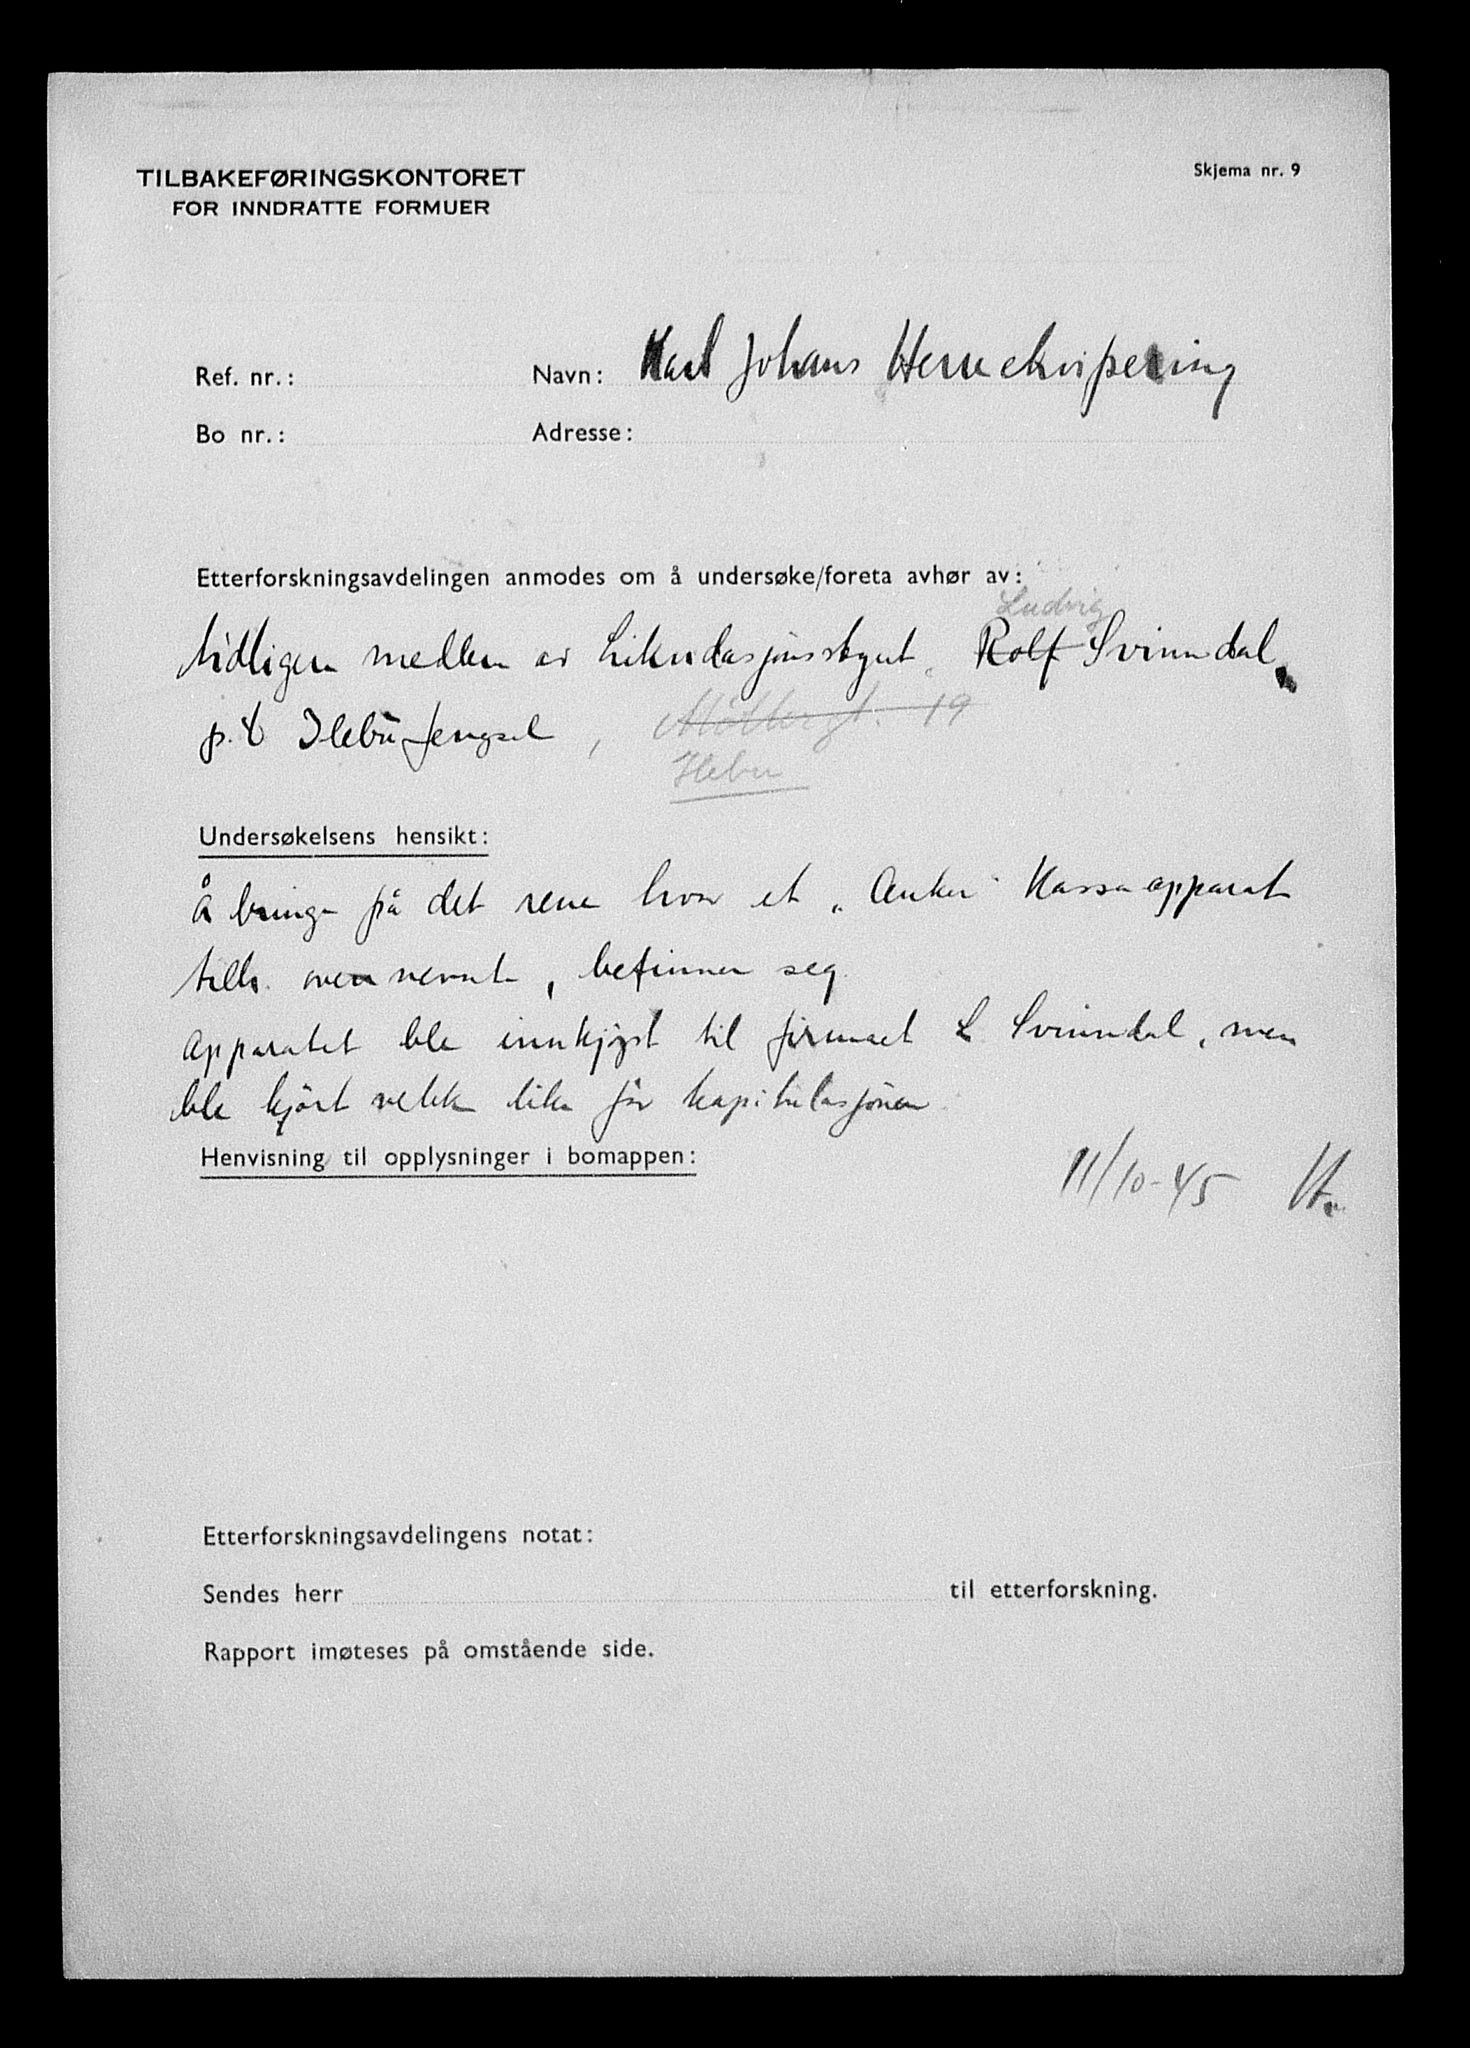 TILBAKEFØRINGSKONTORET
FOR INNDRATTE FORMUER
Skjema nr. 9
Ref. nr.: Navn: Karl Johans Herreekvipering
Bo nr.: Adresse:
Etterforskningsavdelingen anmodes om å undersøke/foreta avhør av:
Ludvig
tidligere medlem av Likvidasjonsstyret, Rolf Svinndal,
p.t Ilebu fengsel, Möllergt. 19
Ilebu
Undersøkelsens hensikt:
Å bringe på det rene hvor et „Anker" Kassaapparat
tilh. ovennevnte, befinner seg.
Apparatet ble innkjøpt til firmaet L Svinndal, men
ble kjört vekk like för kapitulasjonen.
Henvisning til opplysninger i bomappen:
11/10-45
Etterforskningsavdelingens notat:
Sendes herr til etterforskning.
Rapport imøteses på omstående side.